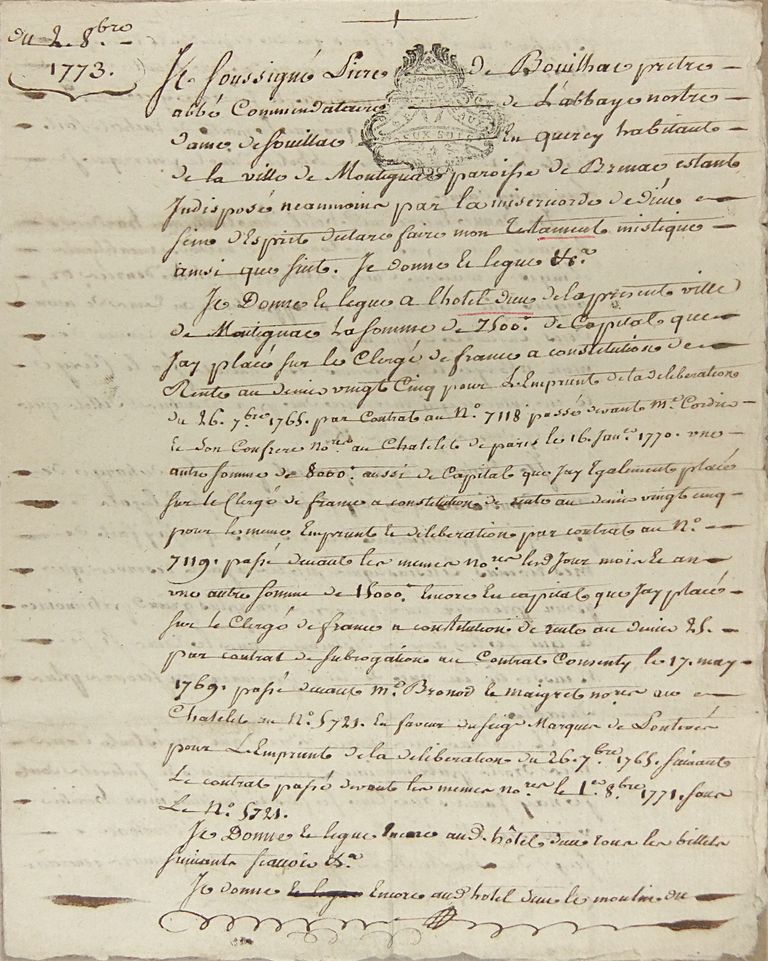 du 2. 8.bre
1773.
Je soussigné Pierre de Bouilhac pretre
abbé Commendataire de L'abbaye nostre
dame de souillac En quercy habitant
de la ville de Montignac paroisse de Brenac estant
Indisposé neanmoins par la misericorde de dieu
sein d'Esprit declare faire mon Testament mistique
ainsi que suit. Je donne et legue &c.a
Je Donne et legue a l'hotel dieu de la presente ville
de Montignac la somme de 7500.# de Capital que
Jay placé sur le Clergé de france a constitution de
Rente au denier vingt Cinq pour L'Emprunt de la deliberation
du 26. 7.bre 1765. par Contrat au N.o 7118 passé devant M.e Cordier
et son Confrere no.res au Chatelet de paris le 16. Janv.er 1770. une
autre somme de 8000.# aussi de Capital que Jay Egalement placé
sur le Clergé de france a constitution de rente au denier vingt cinq
pour le meme Emprunt et deliberation par contrat au N.o
7119. passé devant les memes no.res les d. Jour mois et an
une autre somme de 15000.# Encore En capital que Jay placé
sur le Clergé de france a constitution de rente au denier 25.
par contrat de subrogation au Contrat Consenty le 17. may
1769. passé devant M.e Bronod et maigret no.res au
Chatelet au N.o 5721. En faveur du seig.r Marquis de
pour L'Emprunt de la deliberation du 26. 7.bre 1765. suivant
Le contrat passé devant les memes no.res le 1.er 8.bre 1771. sous
Le N.o 5721.
Je Donne et legue Encore aud. hôtel dieu tous les billets
suivants scavoir &c.a
Je donne et legue Encore aud. hotel dieu le moulin du